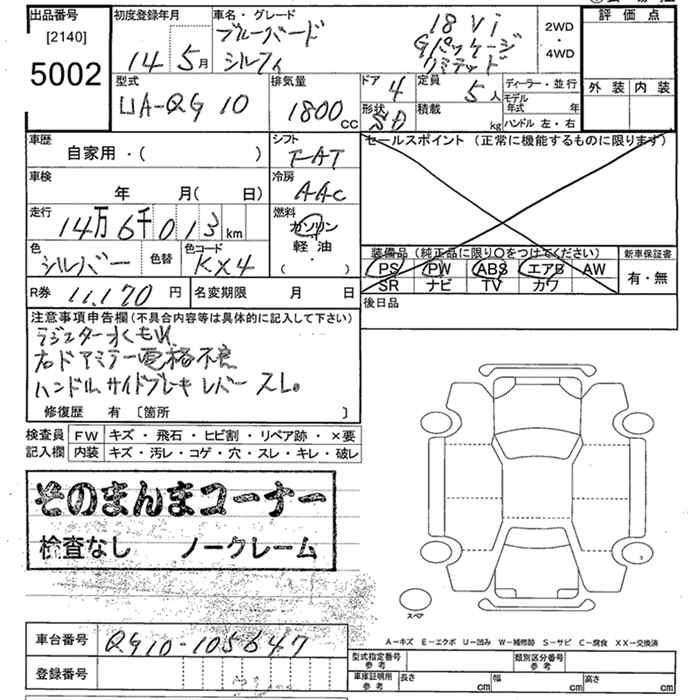 出品番号
[2140]
5002
初度登録年月
14 5月
車名・グレード
ブルーバード
シルフィ
18 Vi
Gパッケージ
リミテッド
2WD
・
4WD
評価点
外装 内装
型式
UA-QG10
排気量
1800 cc
ドア 4
形状 SD
定員 5人
積載 kg
ディーラー・並行
モデル年式 年
ハンドル 左・右
車歴
自家用・( )
シフト
F-AT
セールスポイント (正常に機能するものに限ります)
車検
年 月( 日)
冷房
AAC
走行
14万6千013km
燃料
ガソリン
軽油・
( )
色
シルバー
色替
色コード
KX4
装備品 (純正品に限り〇をつけてください)
PS PW ABS エアB AW
SR ナビ TV カワ
新車保証書
有・無
R券 11,170 円
名変期限 月 日
後日品
注意事項申告欄(不具合内容等は具体的に記入して下さい)
ラジエター水もれ
右ドアミラー電格不良
ハンドル、サイドブレーキレバースレ。
修復歴 有 〔箇所 〕
検査員 FW キズ・飛石・ヒビ割・リペア跡・×要
記入欄 内装 キズ・汚レ・コゲ・穴・スレ・キレ・破レ
そのまんまコーナー
検査なし ノークレーム
スペア
A−キズ E−エクボ U−凹み W−補修跡 S−サビ C−腐食 XX−交換済
車台番号 QG10-105647
登録番号
型式指定番号 参考
類別区分番号 参考
車庫証明用 参考 長さ cm 幅 cm 高さ cm